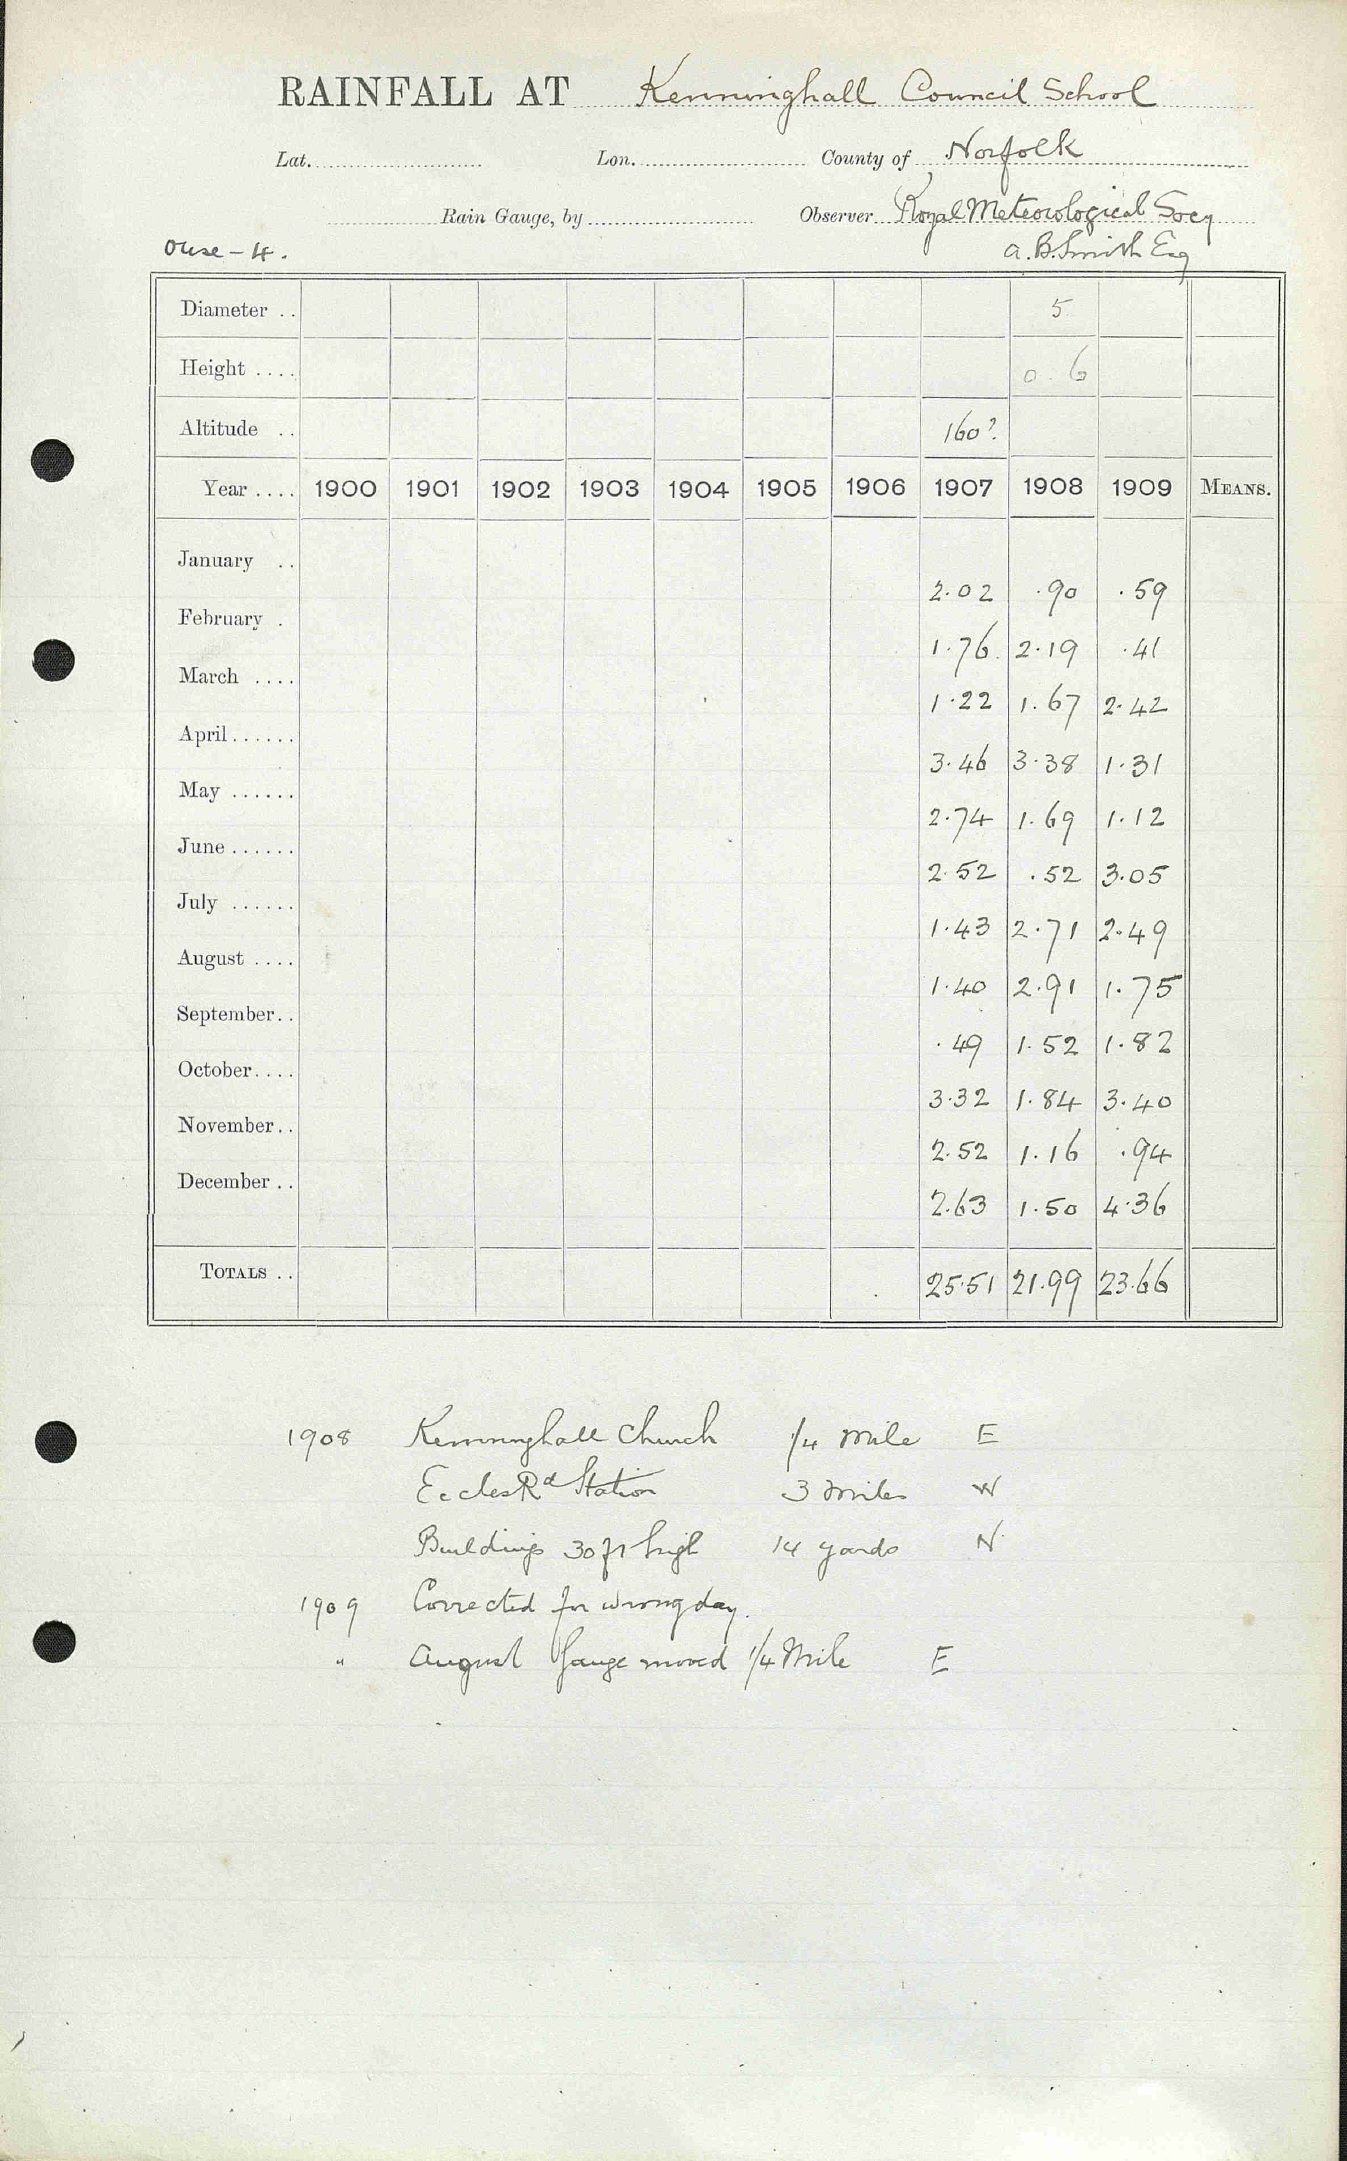 RAINFALL AT Kenninghall Council School
Lat. Lon. County of Norfolk
Rain Gauge, by Observer Royal Meteorological Socy
Ouse - 4. A. B. Smith Esq
Diameter .. 5
Height .... 0. 6
Altitude .. 160?
Year .... 1900 1901 1902 1903 1904 1905 1906 1907 1908 1909 MEANS.
January ..
2.02 .90 .59
February .
1.76 2.19 .41
March ....
1.22 1.67 2.42
April ......
3.46 3.38 1.31
May ......
2.74 1.69 1.12
June ......
2.52 .52 3.05
July ......
1.43 2.71 2.49
August ....
1.40 2.91 1.75
September ..
.49 1.52 1.82
October ....
3.32 1.84 3.40
November ..
2.52 1.16 .94
December ..
2.63 1.50 4.36
TOTALS .. 25.51 21.99 23.66
1908 Kenninghall Church 1/4 mile E
Eccles Rd Station 3 miles W
Buildings 30 ft high 14 yards N
1909 Corrected for wrong day.
" August Gauge moved 1/4 Mile E